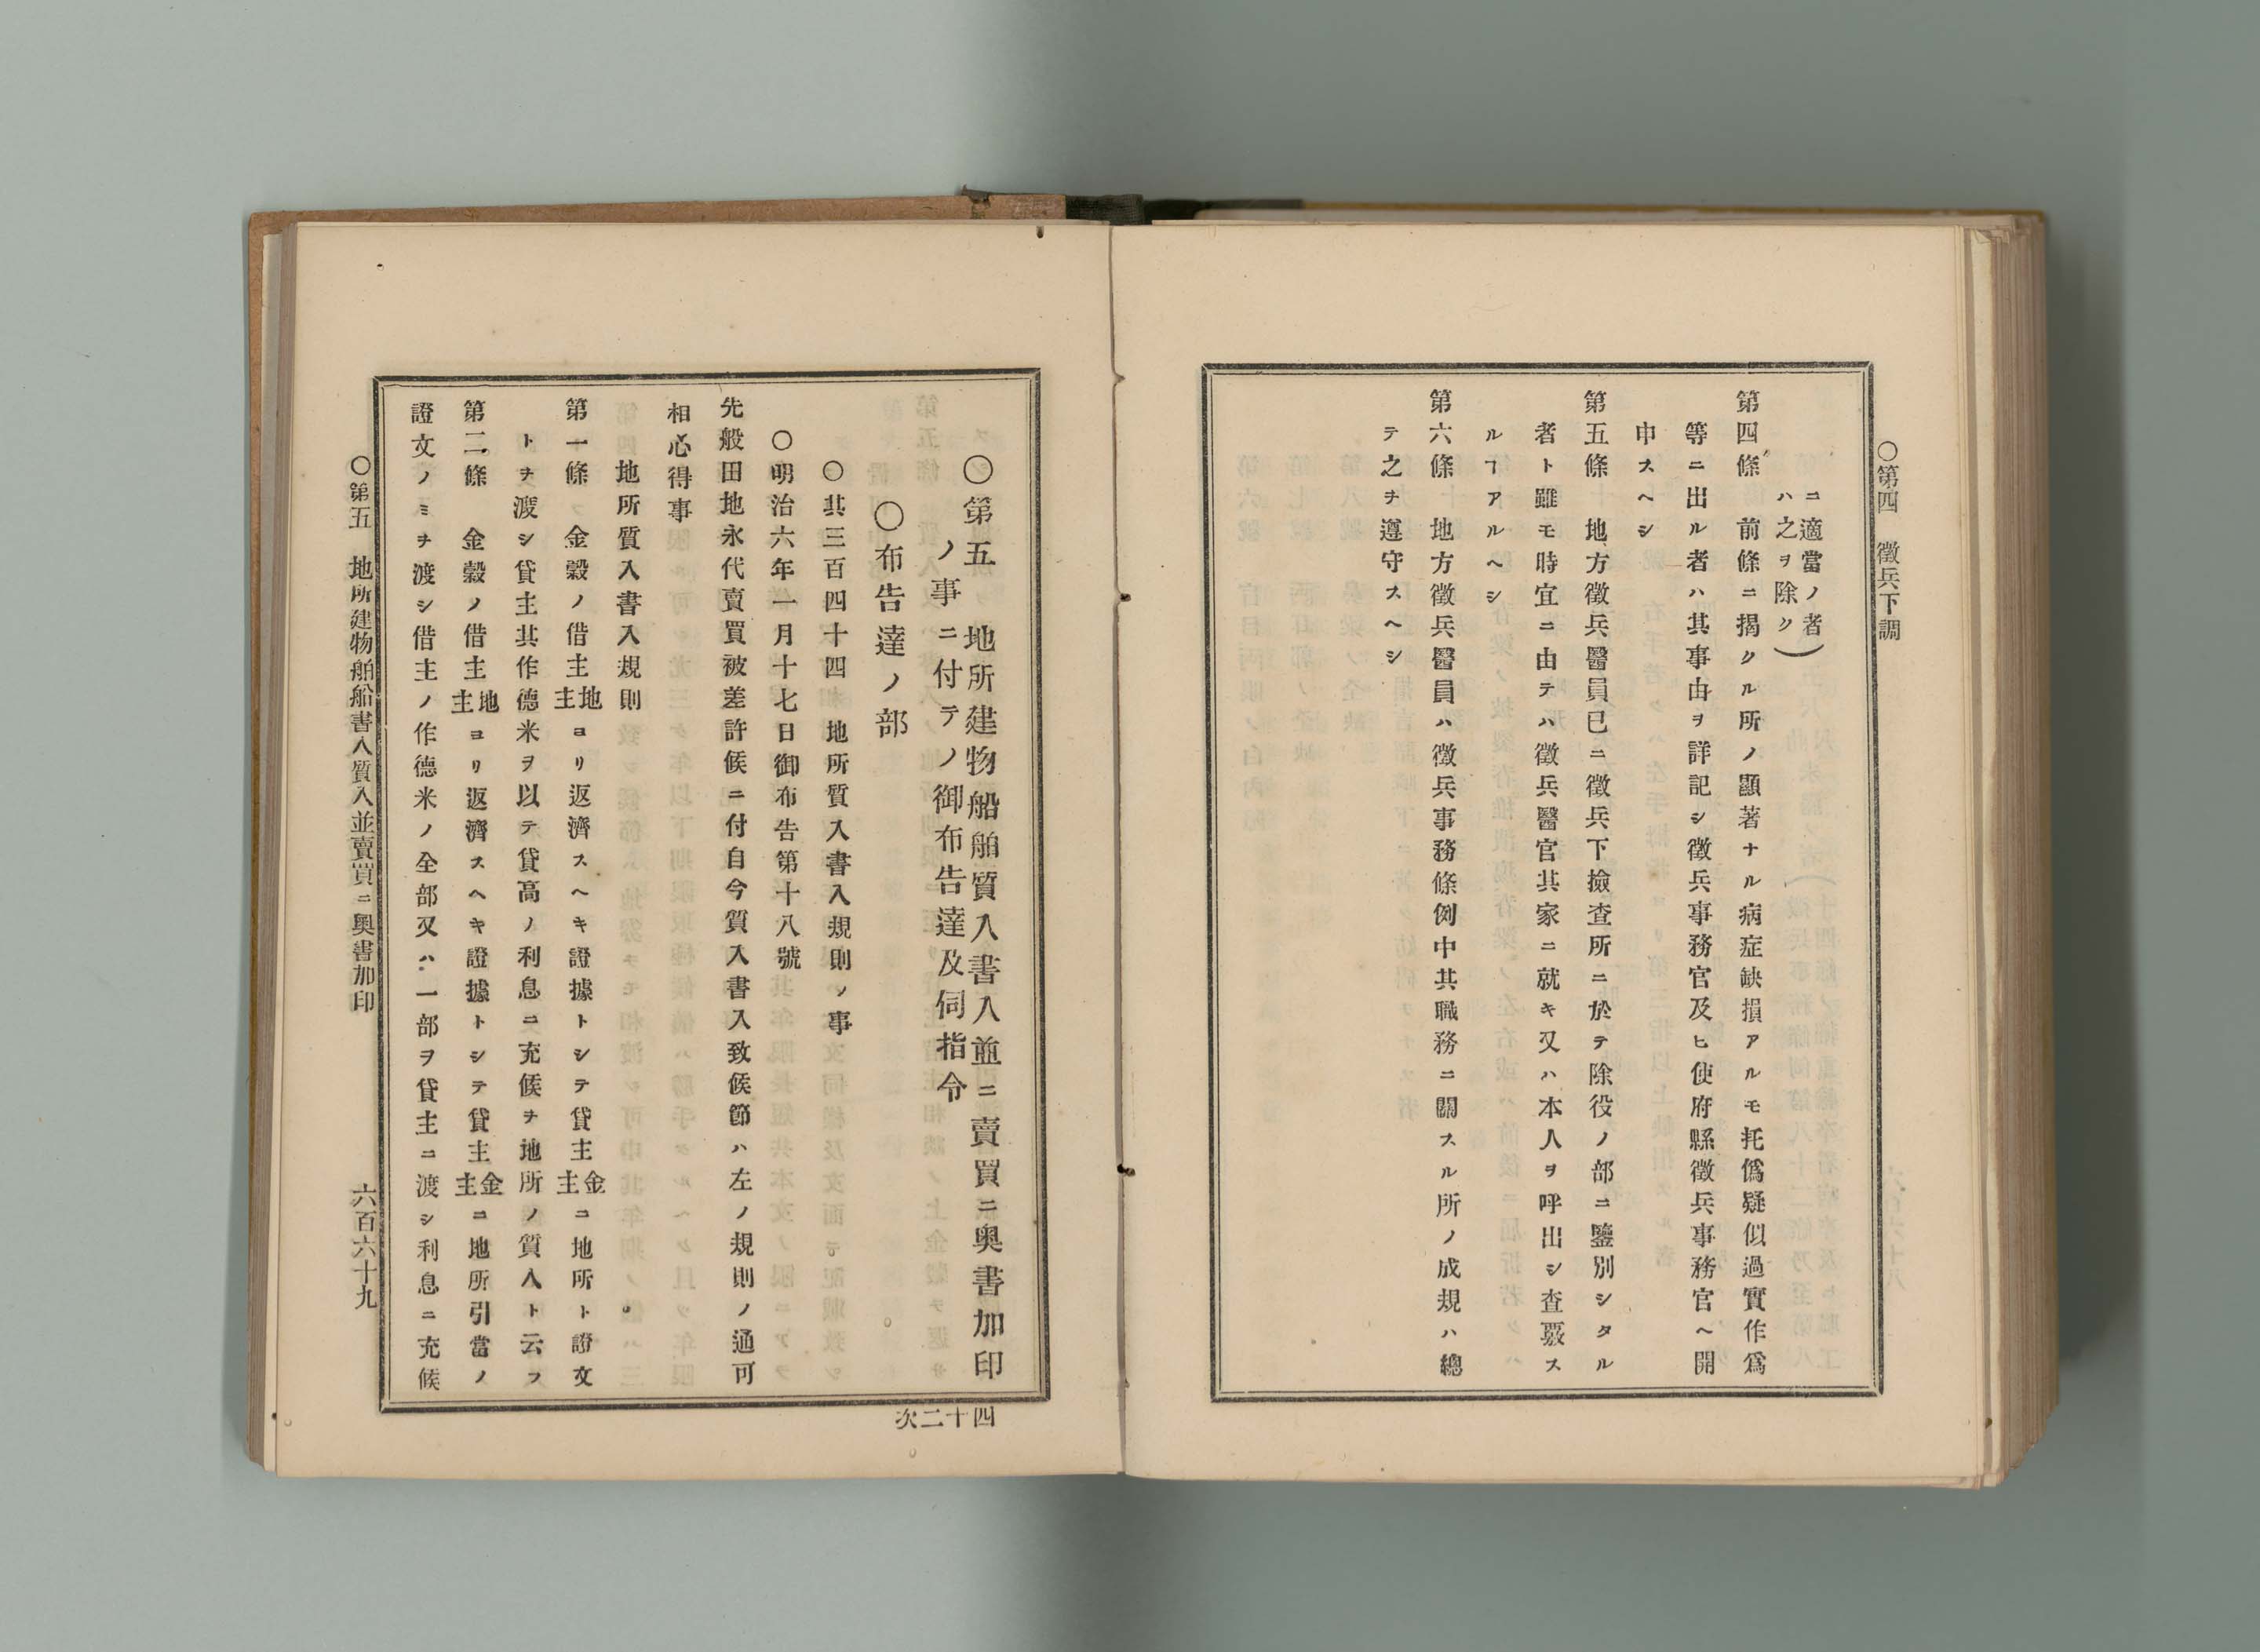 〇第四　徵兵下調
ニ適當ノ者）
ハ之ヲ除ク
第四條　前條ニ揭クル所ノ顯著ナル病症缺損アルモ托僞疑似過實作爲
等ニ出ル者ハ其事由ヲ詳記シ徵兵事務官及ヒ使府縣徵兵事務官ヘ開
申スヘシ
第五條　地方徵兵醫員已ニ徵兵下撿査所ニ於テ除役ノ部ニ鑒別シタル
者ト雖モ時宜ニ由テハ徵兵醫官其家ニ就キ又ハ本人ヲ呼出シ查覈ス
ルヿアルヘシ
第六條　地方徵兵醫員ハ徵兵事務條例中其職務ニ關スル所ノ成規ハ總
テ之ヲ遵守スヘシ
〇第五　地所建物船舶質入書入並ニ賣買ニ奧書加印
ノ事ニ付テノ御布告達及伺指令
〇布告達ノ部
〇其三百四十四　地所質入書入規則ノ事
〇明治六年一月十七日御布告第十八號
先般田地永代賣買被差許候ニ付自今質入書入致候節ハ左ノ規則ノ通可
相心得事
地所質入書入規則
第一條　金穀ノ借主地主ヨリ返濟スヘキ證據トシテ貸主金主ニ地所ト證文
トヲ渡シ貸主其作德米ヲ以テ貸高ノ利息ニ充候ヲ地所ノ質入ト云フ
第二條　金穀ノ借主地主ヨリ返濟スヘキ證據トシテ貸主金主ニ地所引當ノ
證文ノミヲ渡シ借主ノ作德米ノ全部又ハ一部ヲ貸主ニ渡シ利息ニ充候
〇第五　地所建物舶船書入質入並賣買ニ奧書加印
六百六十九
四十二次